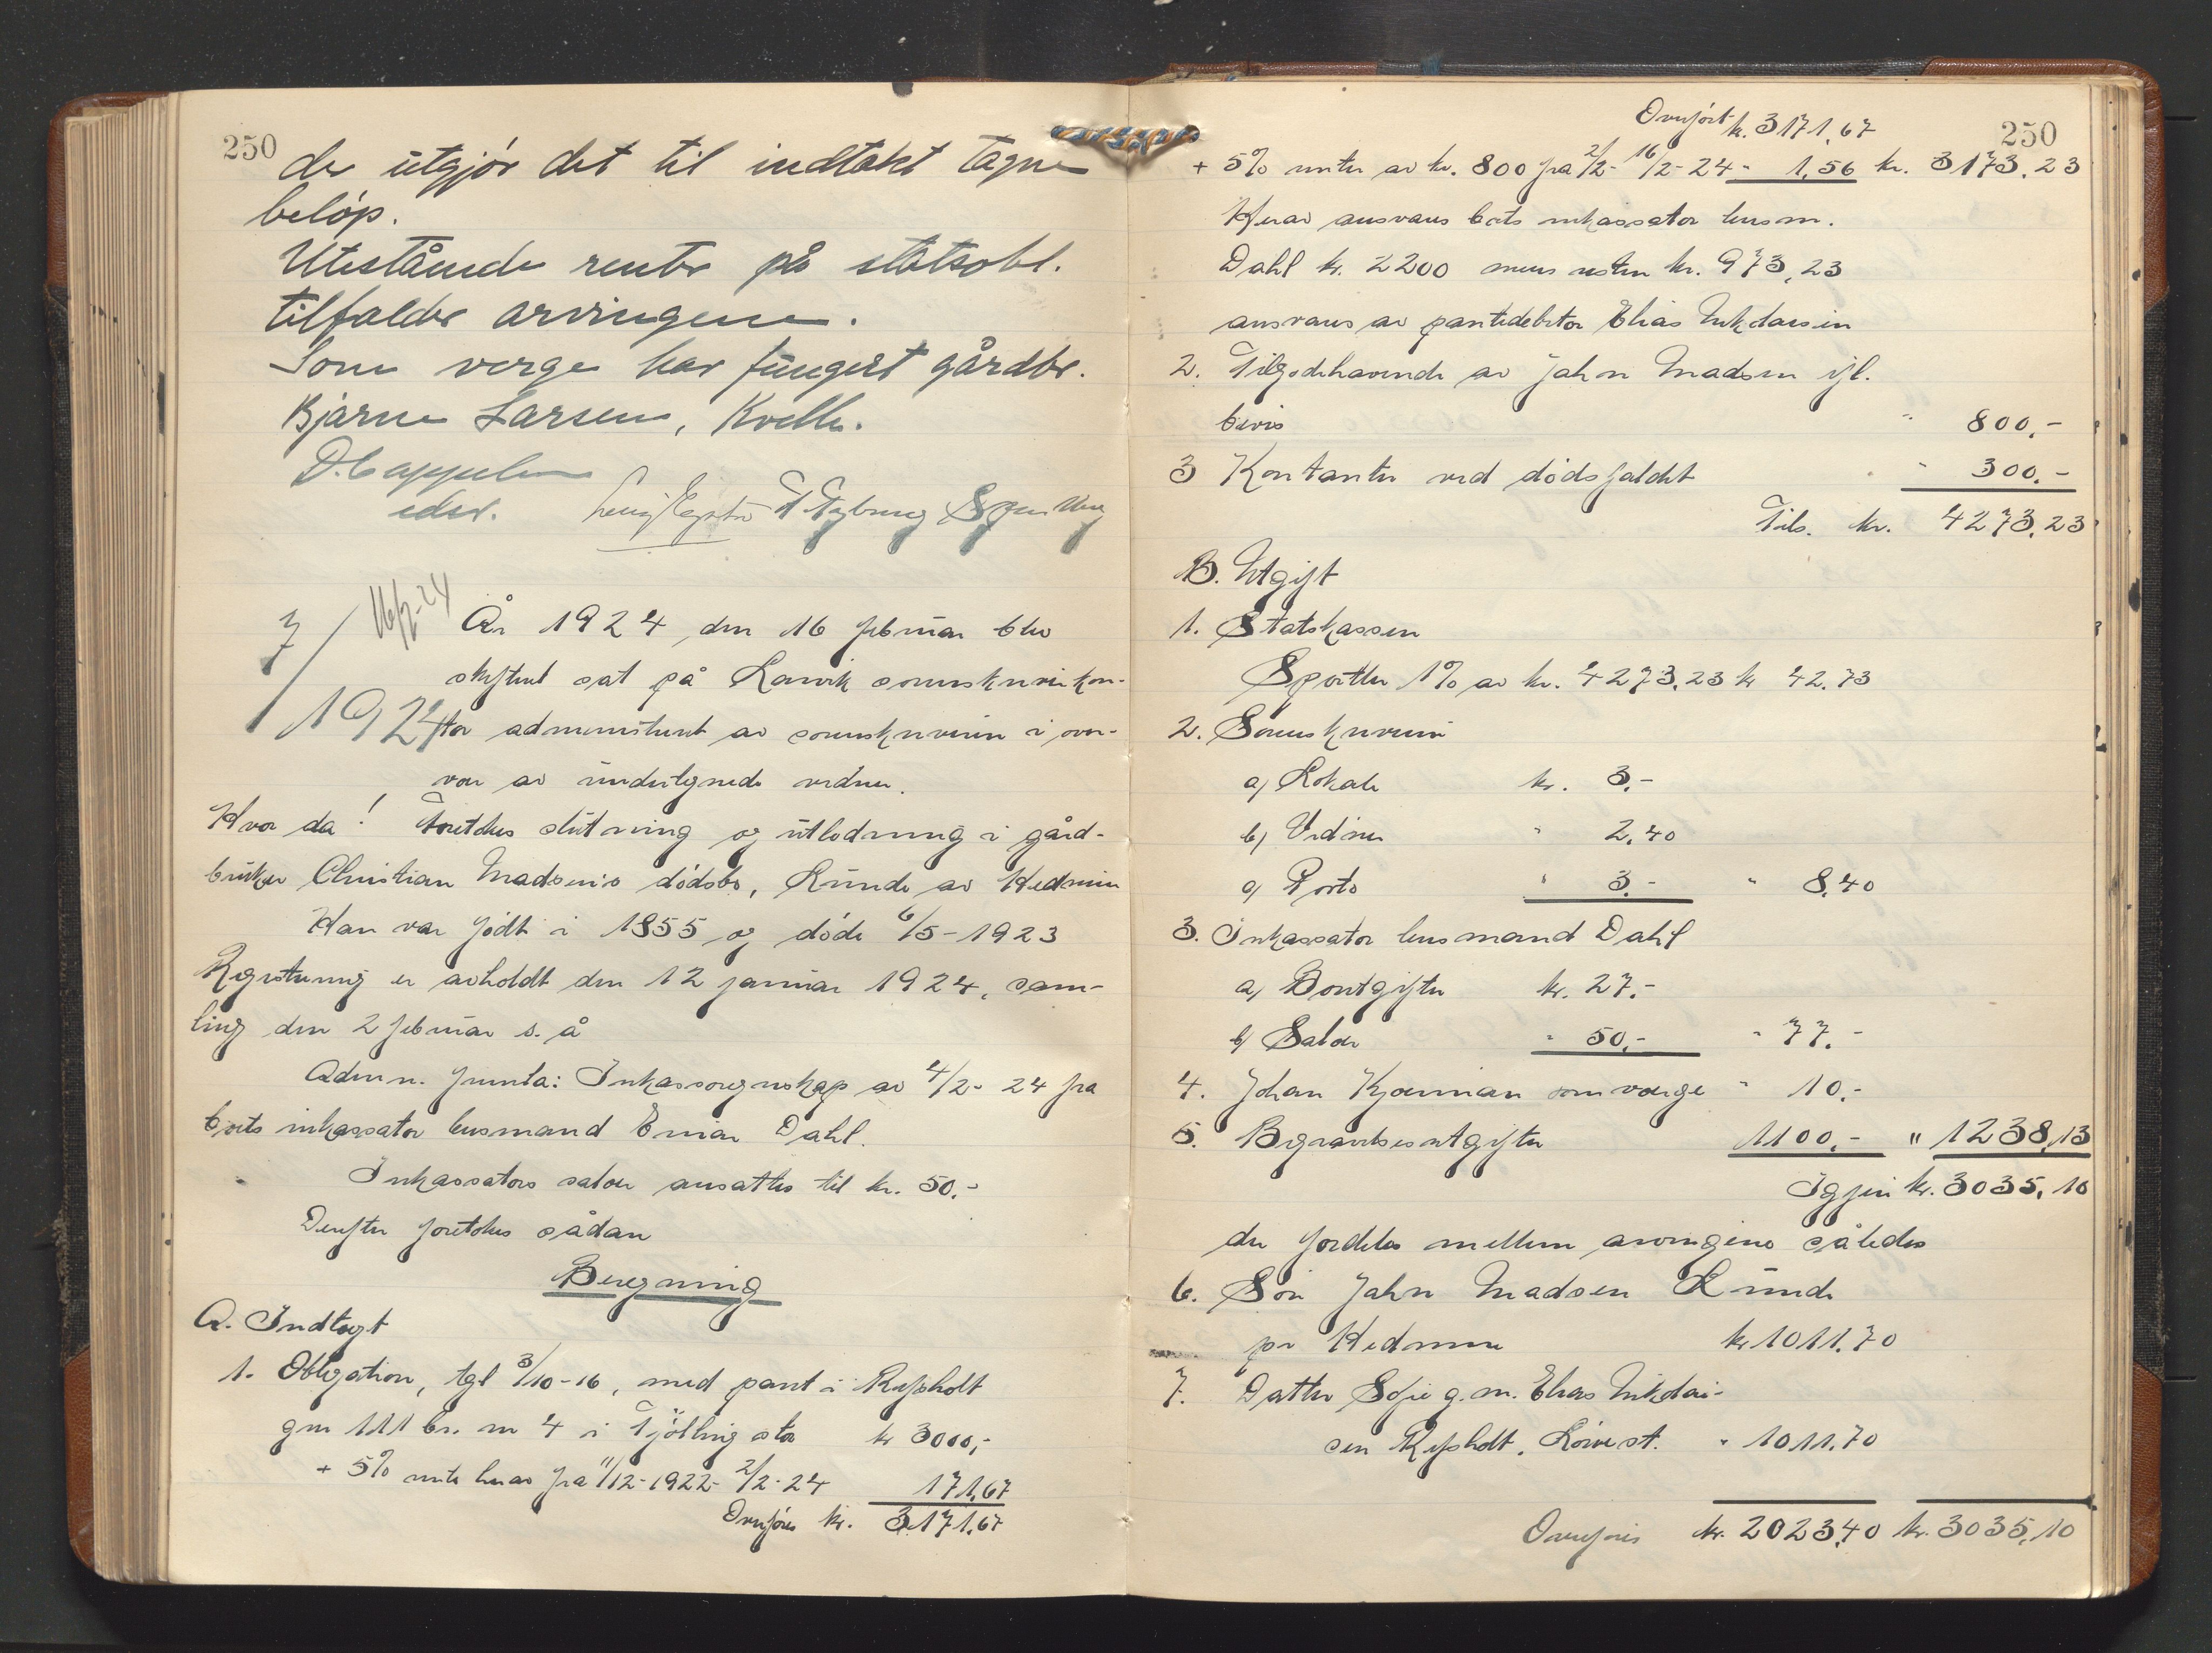 250
de utgjør det til indtækt tagne
beløp.
Utestående renter på statsobl.
tilfalder arvingene.
Som verge har fungert gårdbr.
Bjarne Larsen, Kvelle.
D. Cappelen
edsv.
7/1924
16/2-24
År 1924, den 16 februar blev
skifteret sat på Larvik sorenskriverkon-
tor administrert av sorenskriveren i over-
vær av undertegnede vidner.
Hvor da! Foretokes slutning og utlodning i gård-
bruker Christian Madsen's dødsbo, Lunde av Hedrum
Han var født i 1855 og døde 6/5-1923
Registrering er avholdt den 12 januar 1924, sam-
ling den 2 februar s. å
Adm n. fremla: Inkassoregnskap av 4/2-24 fra
boets inkassator lensmand Einar Dahl.
Inkassators salær ansattes til kr. 50.-
Derefter foretokes sådan
Beregning
A. Indtægt
1. Obligation, tgl 3/10-16, med pant i Rifsholt
gnr 111 br. nr 4 i Tjølling stor kr 3000,-
+ 5% rente herav fra 11/12-1922-2/2-24 171,67
Overføres kr. 3171.67
250
Overført kr. 3171,67
+ 5% renter av kr. 800 fra 2/2-16/2-24 - 1,56 kr. 3173.23
Herav ansvares boets inkassator lensm.
Dahl kr. 2200 mens resten kr. 973,23
ansvares av pantedebitor Elias Nikolaisen
2. Tilgodehavende av Jahn Madsen ifl.
bevis " 800.-
3 Kontanter ved dødsfaldet " 300.-
Tils. kr. 4273.23
B. Utgift
1. Statskassen
Sportler 1% av kr. 4273.23 kr 42.73
2. Sorenskriveren
a) Lokale kr. 3.-
b) Vidner " 2.40
c) Porto " 3.- " 8.40
3. Inkassator lensmand Dahl
a) Boutgifter kr. 27.-
b) Salær " 50.- " 77.-
4. Johan Kjærnian som værge " 10.-
5. Begravelsesutgifter 1100.- " 1238,13
Igjen kr. 3035.10
der fordeles mellem arvingene således
6. Søn Jahn Madsen Lunde
pr Hedrum kr 1011.70
7. Datter Sofie g. m. Elias Nikolai-
sen Rifsholt, Løvest. " 1011.70
Overføres kr. 2023.40 kr. 3035.10